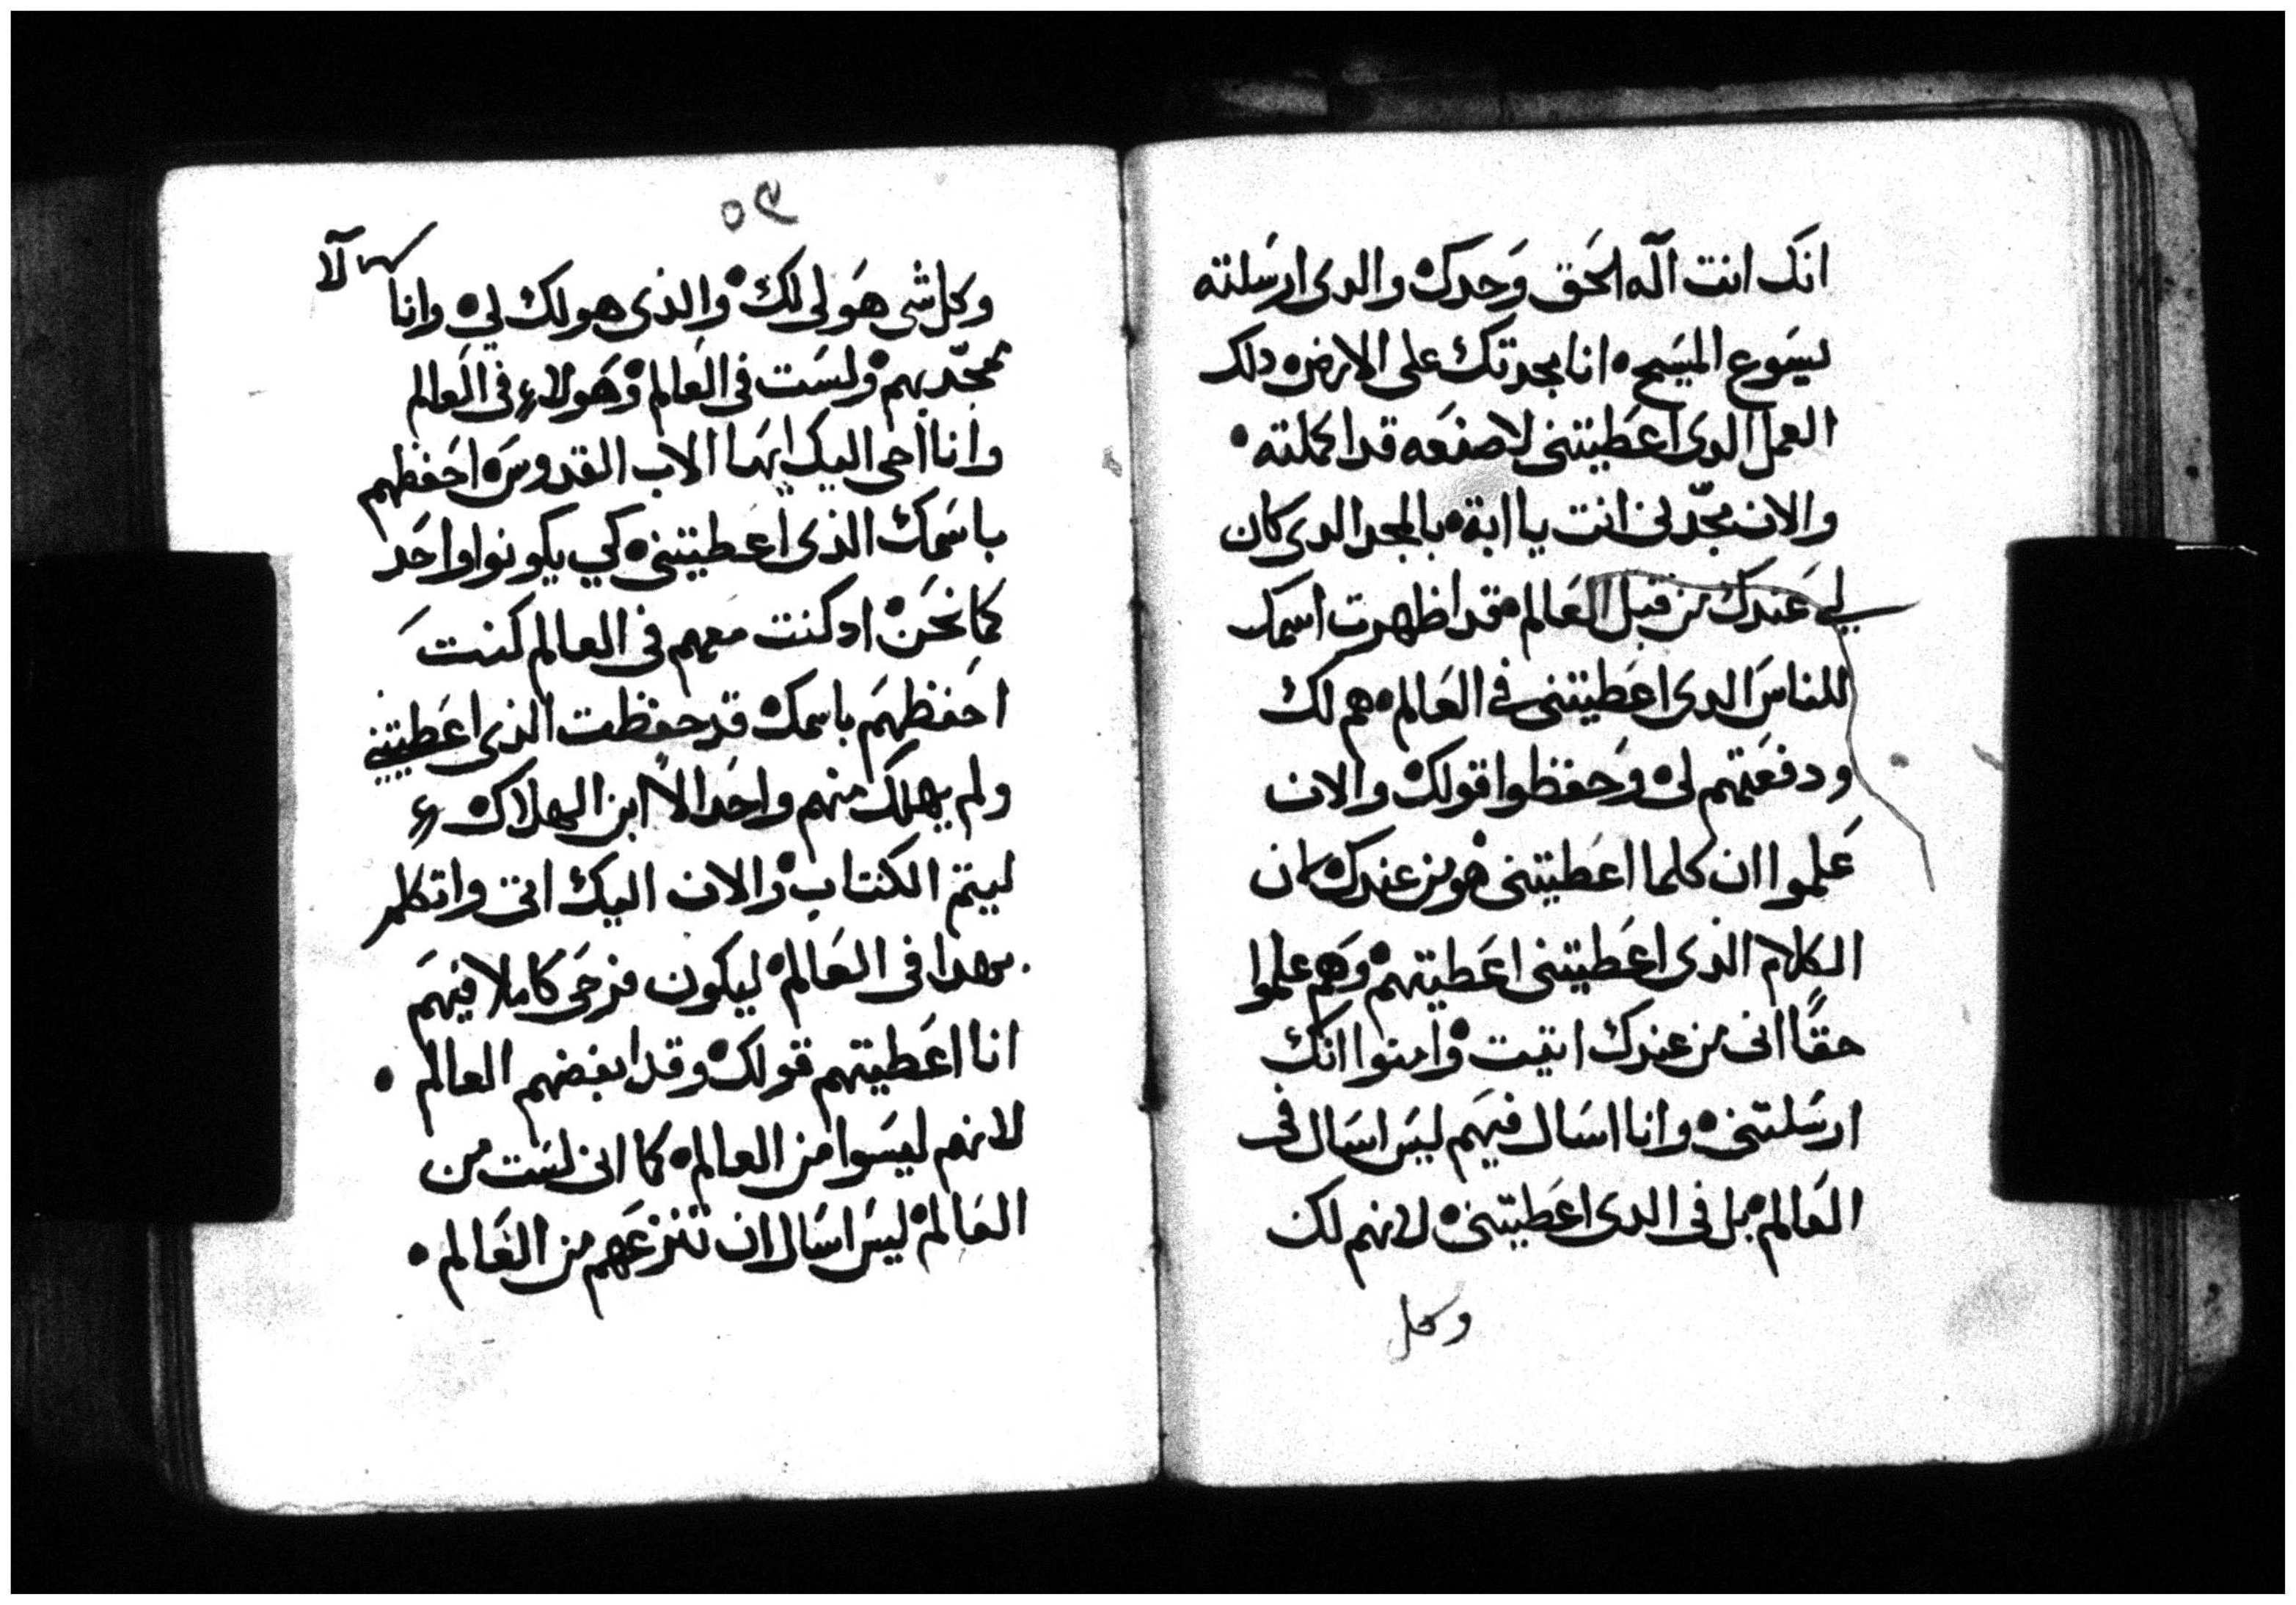 انك انت اله الحق وحدك والدى ارسلته
يسوع المسيح انا مجدتك على الارض دلك
العمل الدى اعطيتنى لاصنعه قد اكملته
والان مجّدنى انت يا ابة بالمجد الدى كان
لي عندك من قبل العالم قد اظهرت اسمك
للناس الدى اعطيتنى في العالم هم لك
ودفعتهم لى وحفظوا قولك والان
علموا ان كلما اعطيتنى هو من عندك لان
الكلام الذى اعطيتنى اعطيتهم وهم علموا
حقًا انى من عندك اتيت وامنوا انك
ارسلتنى وانا اسال فيهم ليس اسال فى
العالم بل فى الدى اعطيتنى لانهم لك
وكل
٥٩
وكل شى هو لى لك والذى هو لك لي وانا
لا
ممجّد بهم ولست فى العالم وهولاء فى العالم
وانا اجى اليك ايها الاب القدوس احفظهم
باسمك الذى اعطيتنى كي يكونوا واحد
كما نحن اد كنت معهم فى العالم كنت
احفظهم باسمك قد حفظت الذى اعطيتني
ولم يهلك منهم واحد الا ابن الهلاك
ليتم الكتاب والان اليك اتى واتكلم
بهدا فى العالم ليكون فرحى كاملا فيهم
انا اعطيتهم قولك وقد ابغضهم العالم
لانهم ليسوا من العالم كما انى لست من
العالم ليس اسال ان تنزعهم من العالم